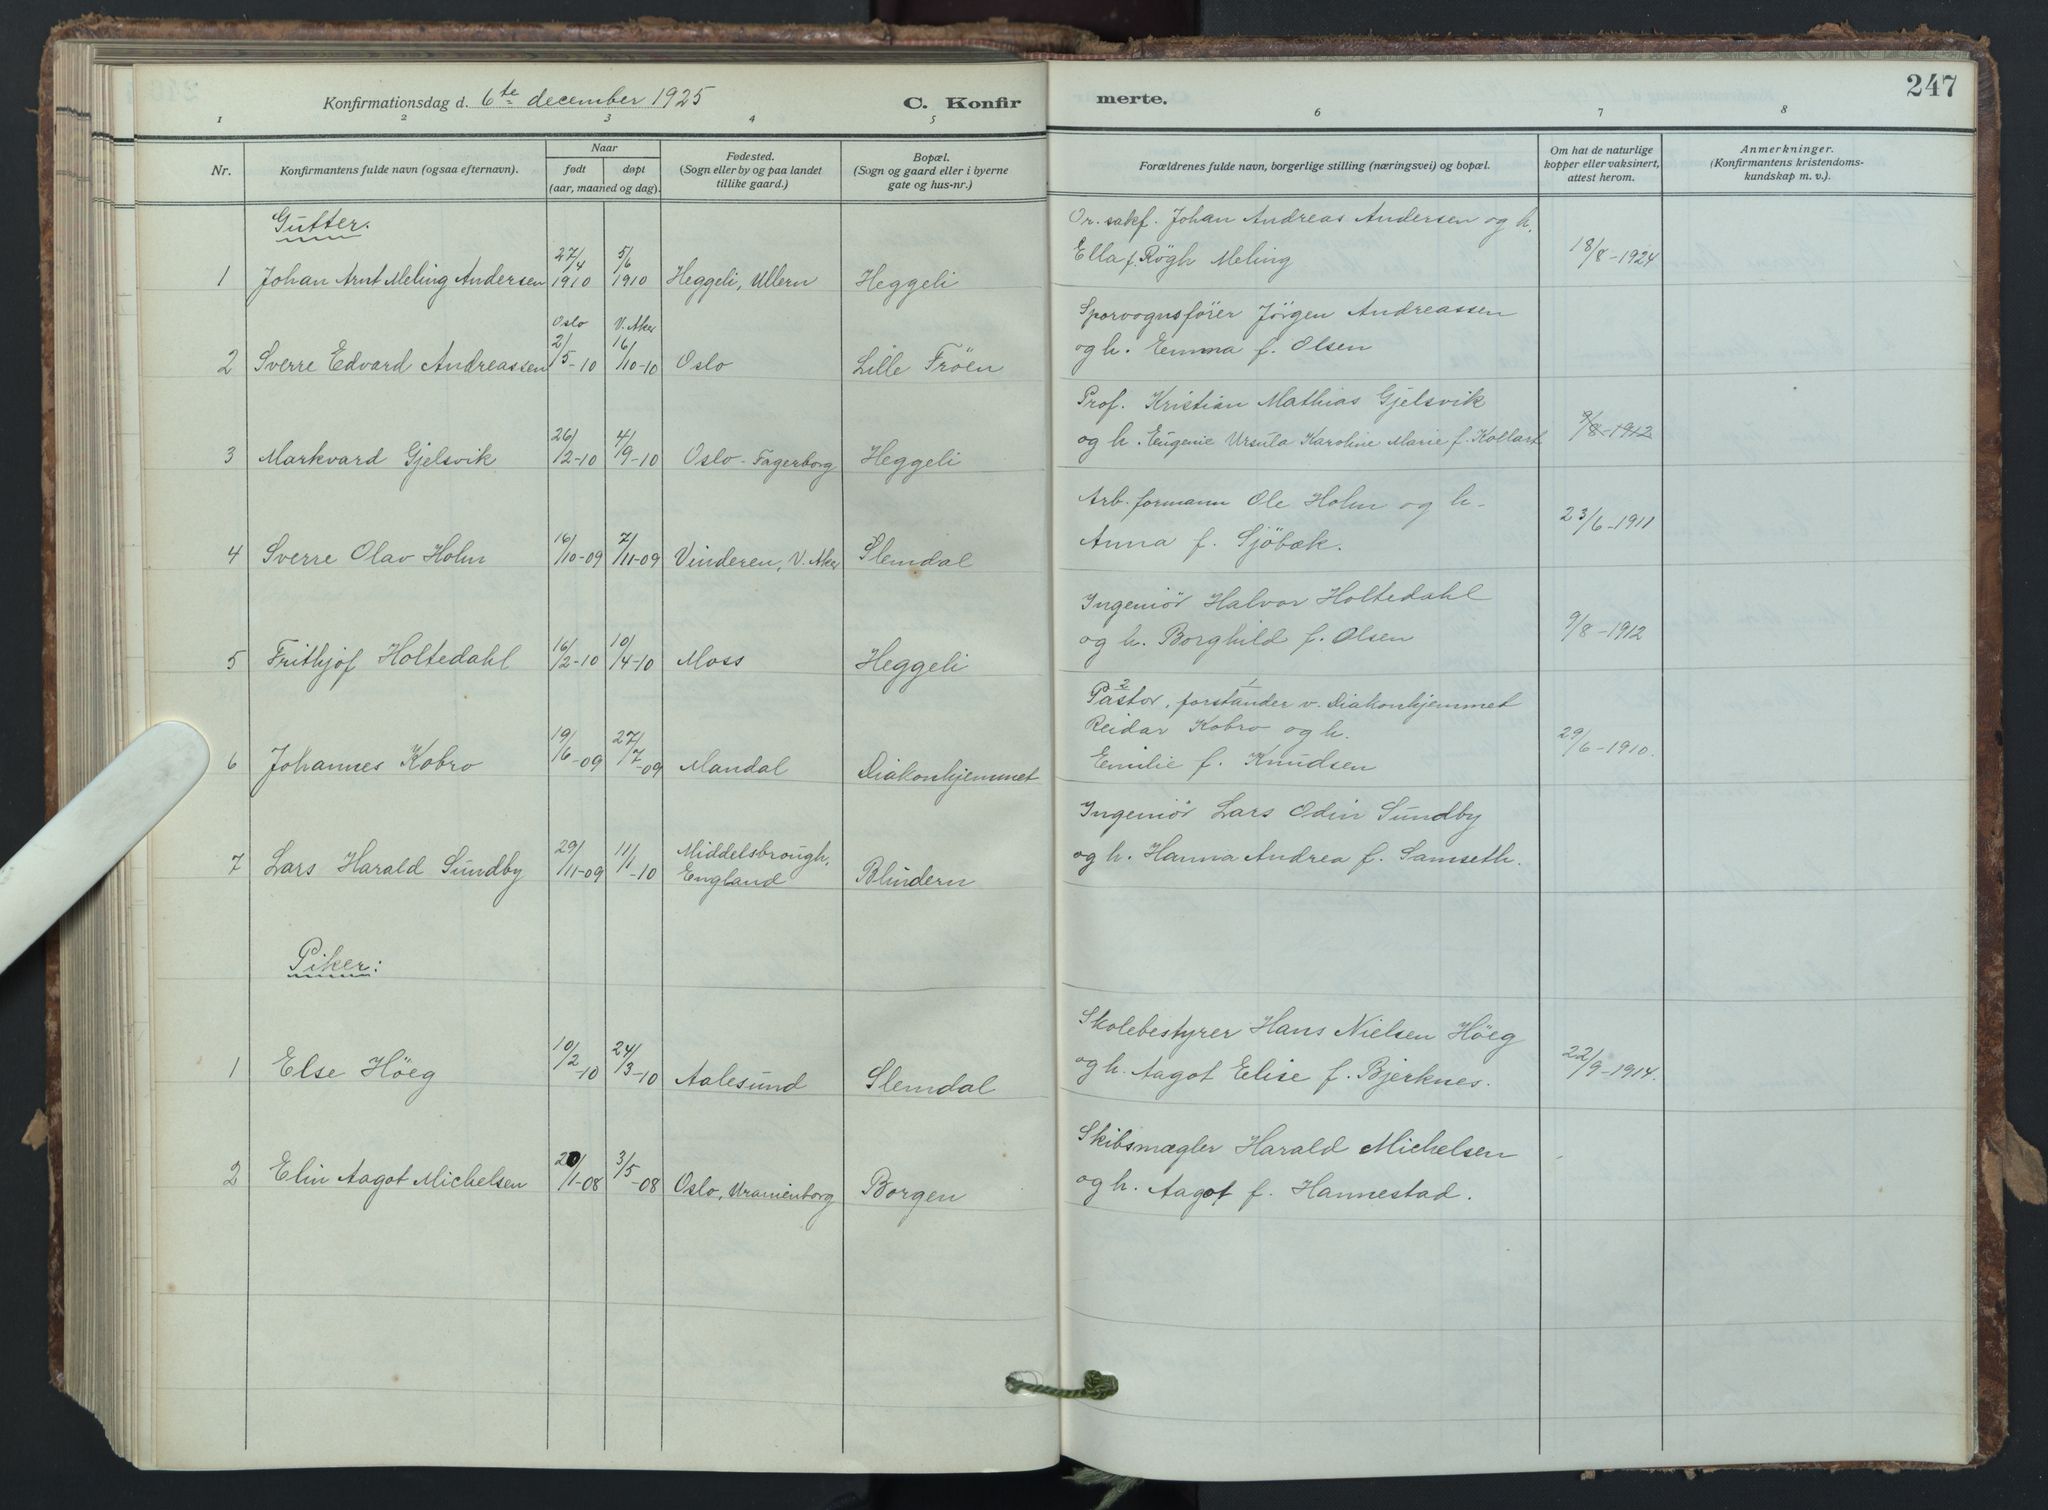 247
Konfirmationsdag d. 6te december 1925
C. Konfir
merte.
1 2 3 4 5 6 7 8
Nr.
Konfirmantens fulde navn (ogsaa efternavn).
Naar
født døpt
(aar, maaned og dag).
Fødested.
(Sogn eller by og paa landet
tillike gaard.)
Bopæl.
(Sogn og gaard eller i byerne
gate og hus-nr.)
Forældrenes fulde navn, borgerlige stilling (næringsvei) og bopæl.
Om hat de naturlige
kopper eller vaksinert,
attest herom.
Anmerkninger.
(Konfirmantens kristendoms-
kundskap m. v.).
Gutter.
Or. sakf. Johan Andreas Andersen og h.
Ella f. Røgh Meling
1 Johan Arnt Meling Andersen 27/4 1910 5/6 1910 Heggeli, Ullern Heggeli 18/8-1924
Oslo V. Aker
Sporvognsfører Jørgen Andreassen
og h. Emma f. Olsen
2 Sverre Edvard Andreassen 2/5-10 16/10-10 Oslo Lille Frøen
Prof. Kristian Mathias Gjelsvik
og h. Eugenie Ursula Karoline Marie f. Kollart
3 Markvard Gjelsvik 26/2-10 4/9-10 Oslo-Fagerborg Heggeli 9/8-1912
Arb. formann Ole Holm og h.
Anna f. Sjöbæk.
4 Sverre Olav Holm 16/10-09 7/11-09 Vinderen, V. Aker Slemdal 23/6-1911
Ingeniør Halvor Holtedahl
og h. Borghild f. Olsen
5 Frithjof Holtedahl 16/2-10 10/4-10 Moss Heggeli 9/8-1912
2 1
Pastor, forstander v. Diakonhjemmet
Reidar Kobro og h.
Emilie f. Knudsen
6 Johannes Kobro 19/6-09 27/7-09 Mandal Diakonhjemmet 29/6-1910.
Ingeniør Lars Odin Sundby
og h. Hanna Andrea f. Samseth.
7 Lars Harald Sundby 29/11-09 11/1-10 Middelsbrough, England Blindern
Piker:
Skolebestyrer Hans Nielsen Höeg
og h. Aagot Elise f. Bjerknes.
1 Else Höeg 10/2-10 24/3-10 Aalesund Slemdal 22/9-1914.
Skibsmægler Harald Michelsen
og h. Aagot f. Hannestad.
2 Elin Aagot Michelsen 20/1-08 3/5-08 Oslo, Uranienborg Borgen